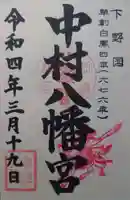 下野国
朝創白鳳四年(六七六乗)
中村八幡宮
令和四年三月十九日